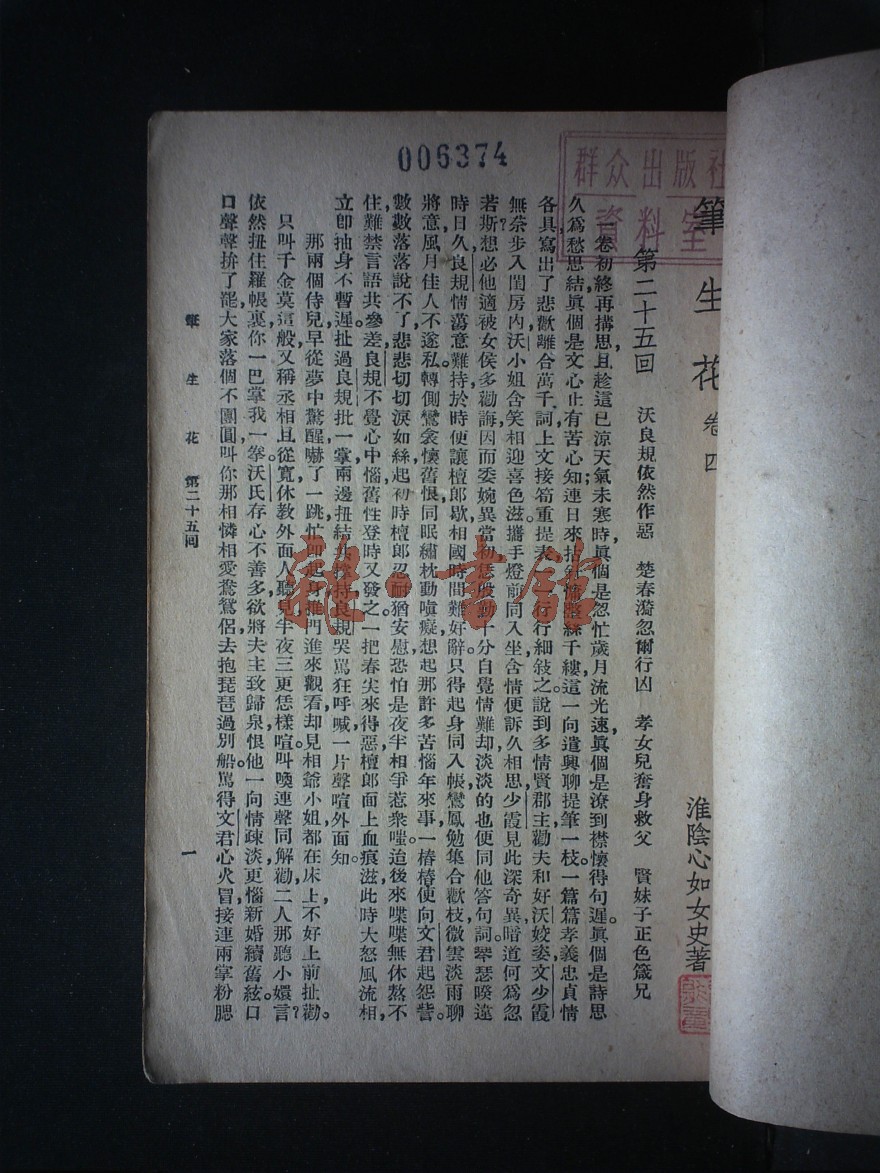 006374
群众出版社
資料室
筆生花 卷四
淮陰心如女史著
第二十五回 沃良規依然作惡 楚春漪忽爾行凶 孝女兒奮身救父 賢妹子正色箴兄
一卷初終再搆思,且趁這已涼天氣未寒時,眞個是忽忙歲月流光速,眞個是潦到襟懷得句遲。眞個是詩思
久爲愁思結,眞個是文心止有苦心知,連日來
千縷,這一向遣興聊提筆一枝。一篇篇孝義忠貞情
各具,寫出了悲歡離合萬千詞,上文接筍重提表,一行行細敍之。說到多情賢郡主,勸夫和好沃姣姿,文少霞
無奈步入閨房內,沃小姐含笑相迎喜色滋。攜手燈前同入坐,含情便訴久相思,少霞見此深奇異,暗道何爲忽
若斯?想必他適被女侯多勸誨,因而委婉異當初,
十分自覺情難却,淡淡的也便同他答句詞。琴瑟暌違
時日久,良規情蕩意難持,於時便讓檀郎歇,相國時間難好辭。只得起身同入帳,鸞鳳勉集合歡枝,微雲淡雨聊
將意,風月佳人不遂私。轉側鸞衾懷舊恨,同眠繡枕動嗔癡,想起那許多苦惱年來事,一樁樁便向文君起怨訾。
數數落落說不了,悲悲切切淚如絲,起初時檀郎忍耐猶安慰,恐怕是夜半相爭惹衆嗤。迨後來喋喋無休熬不
住,難禁言語共參差,良規不覺心中惱,舊性登時又發之。一把春尖來得惡,檀郎面上血痕滋,此時大怒風流相,
立卽抽身不暫遲。扯過良規批一掌,兩邊扭結共撐持,良規哭罵狂呼喊,一片聲喧外面知。
那兩個侍兒,早從夢中驚醒,嚇了一跳,忙卽起身推門進來觀看,却見相爺小姐都在床上,不好上前扯勸。
只叫千金莫這般,又稱丞相且從寬,休教外面人聽見,半夜三更恁樣喧。叫喚連聲同解勸,二人那聽小嬛言?
依然扭住羅帳裏,你一巴掌我一拳。沃氏存心不善多,欲將夫主致歸泉,恨他一向情疎淡,更惱新婚續舊絃。口
口聲聲拚了罷,大家落個不團圓,叫你那相憐相愛鴛鴛侶,去抱琵琶過別船。罵得文君心火冒,接連兩掌粉腮
筆生花 第二十五回 一
雜·書館